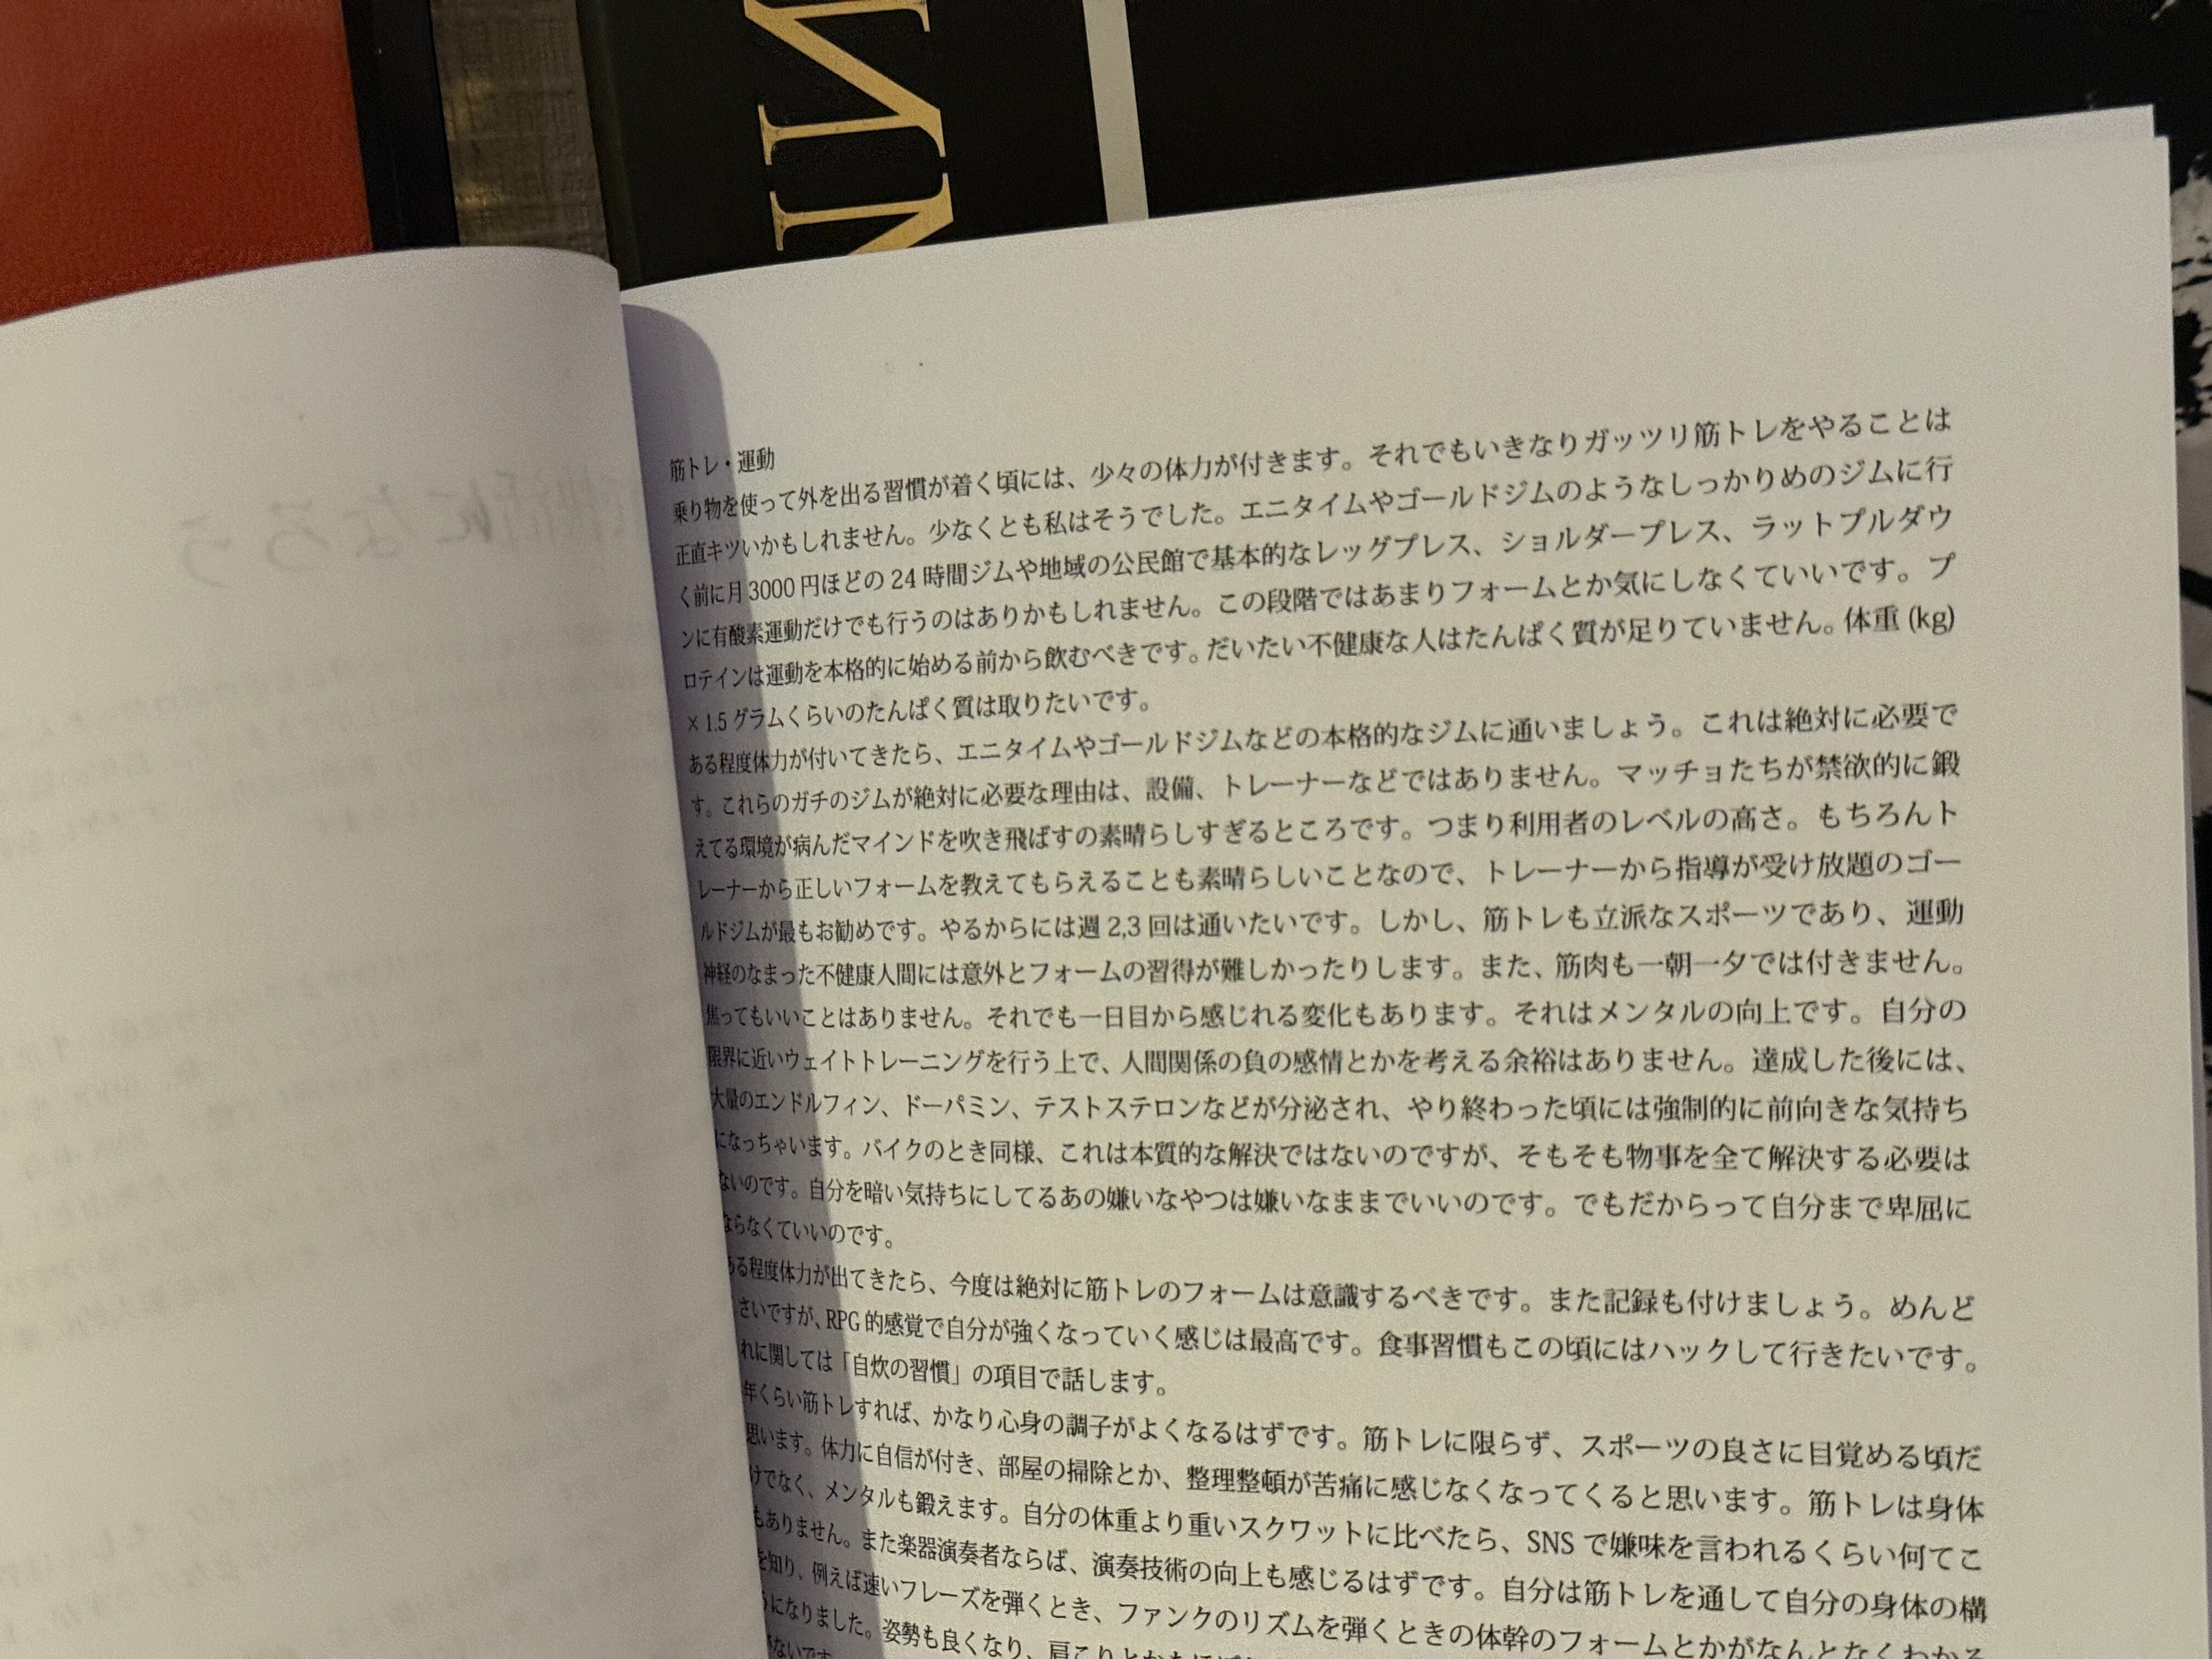 筋トレ・運動
乗り物を使って外を出る習慣が着く頃には、少々の体力が付きます。それでもいきなりガッツリ筋トレをやることは
正直キツいかもしれません。少なくとも私はそうでした。エニタイムやゴールドジムのようなしっかりめのジムに行
く前に月 3000 円ほどの 24 時間ジムや地域の公民館で基本的なレッグプレス、ショルダープレス、ラットプルダウ
ンに有酸素運動だけでも行うのはありかもしれません。この段階ではあまりフォームとか気にしなくていいです。プ
ロテインは運動を本格的に始める前から飲むべきです。だいたい不健康な人はたんぱく質が足りていません。体重 (kg)
× 1.5 グラムくらいのたんぱく質は取りたいです。
ある程度体力が付いてきたら、エニタイムやゴールドジムなどの本格的なジムに通いましょう。これは絶対に必要で
す。これらのガチのジムが絶対に必要な理由は、設備、トレーナーなどではありません。マッチョたちが禁欲的に鍛
えてる環境が病んだマインドを吹き飛ばすの素晴らしすぎるところです。つまり利用者のレベルの高さ。もちろんト
レーナーから正しいフォームを教えてもらえることも素晴らしいことなので、トレーナーから指導が受け放題のゴー
ルドジムが最もお勧めです。やるからには週 2,3 回は通いたいです。しかし、筋トレも立派なスポーツであり、運動
神経のなまった不健康人間には意外とフォームの習得が難しかったりします。また、筋肉も一朝一夕では付きません。
焦ってもいいことはありません。それでも一日目から感じれる変化もあります。それはメンタルの向上です。自分の
限界に近いウェイトトレーニングを行う上で、人間関係の負の感情とかを考える余裕はありません。達成した後には、
大量のエンドルフィン、ドーパミン、テストステロンなどが分泌され、やり終わった頃には強制的に前向きな気持ち
になっちゃいます。バイクのとき同様、これは本質的な解決ではないのですが、そもそも物事を全て解決する必要は
ないのです。自分を暗い気持ちにしてるあの嫌いなやつは嫌いなままでいいのです。でもだからって自分まで卑屈に
ならなくていいのです。
ある程度体力が出てきたら、今度は絶対に筋トレのフォームは意識するべきです。また記録も付けましょう。めんど
さいですが、RPG 的感覚で自分が強くなっていく感じは最高です。食事習慣もこの頃にはハックして行きたいです。
れに関しては「自炊の習慣」の項目で話します。
年くらい筋トレすれば、かなり心身の調子がよくなるはずです。筋トレに限らず、スポーツの良さに目覚める頃だ
思います。体力に自信が付き、部屋の掃除とか、整理整頓が苦痛に感じなくなってくると思います。筋トレは身体
けでなく、メンタルも鍛えます。自分の体重より重いスクワットに比べたら、SNS で嫌味を言われるくらい何てこ
もありません。また楽器演奏者ならば、演奏技術の向上も感じるはずです。自分は筋トレを通して自分の身体の構
を知り、例えば速いフレーズを弾くとき、ファンクのリズムを弾くときの体幹のフォームとかがなんとなくわかる
うになりました。姿勢も良くなり、肩こりとか